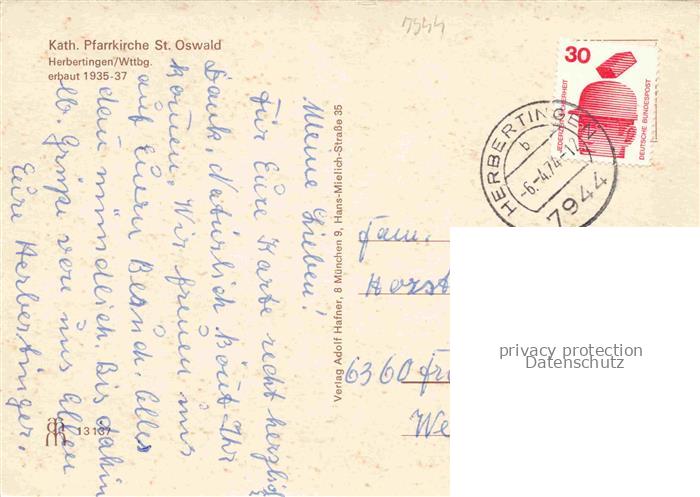 7944
Kath. Pfarrkirche St. Oswald
Herbertingen/Wttbg.
erbaut 1935-37
Meine Lieben!
Für Eure Karte recht herzlich
Dank. Natürlich könnt Ihr
kommen. Wir freuen uns
auf Euern Besuch. Alles
dann mündlich. Bis dahin
lb. Grüße von uns allen
Eure Herbertinger.
13137
Verlag Adolf Hafner, 8 München 9, Hans-Mielich-Straße 35
30
JEDERZEIT SICHERHEIT
DEUTSCHE BUNDESPOST
HERBERTINGEN
b
-6.-4.74-12
7944
Fam.
Horst
6360 Fri
We
privacy protection
Datenschutz